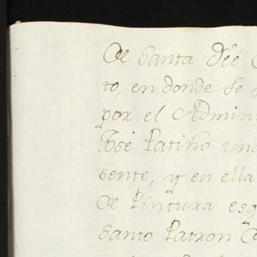 de Santa Fée
to, en donde se
por el Admin
Jsé Patiño un
sente, y en ella
de Pintura esq
Santo Patron d